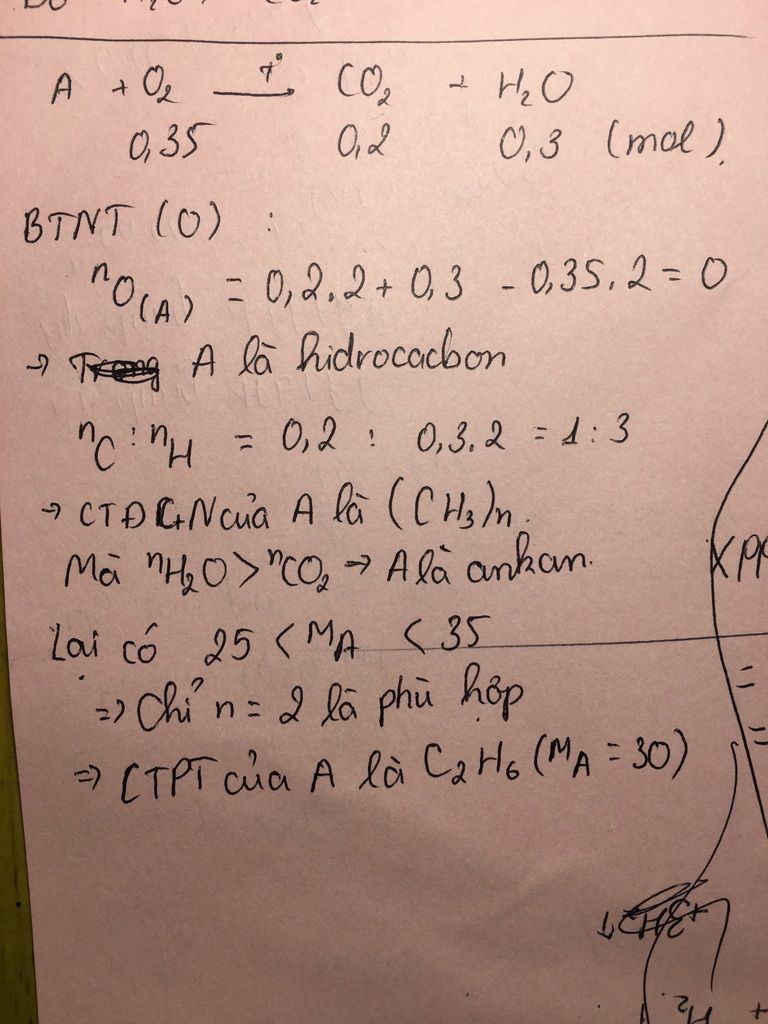 A + O₂ →(t°) CO₂ + H₂O
0,35 0,2 0,3 (mol).
BTNT (O) :
nO(A) = 0,2.2 + 0,3 - 0,35.2 = 0
→ A là hidrocacbon
nC : nH = 0,2 : 0,3.2 = 1 : 3
→ CTĐGN của A là (CH₃)n.
Mà nH₂O > nCO₂ → A là ankan.
Lại có 25 < MA < 35
=> Chỉ n = 2 là phù hợp
=> CTPT của A là C₂H₆ (MA = 30)